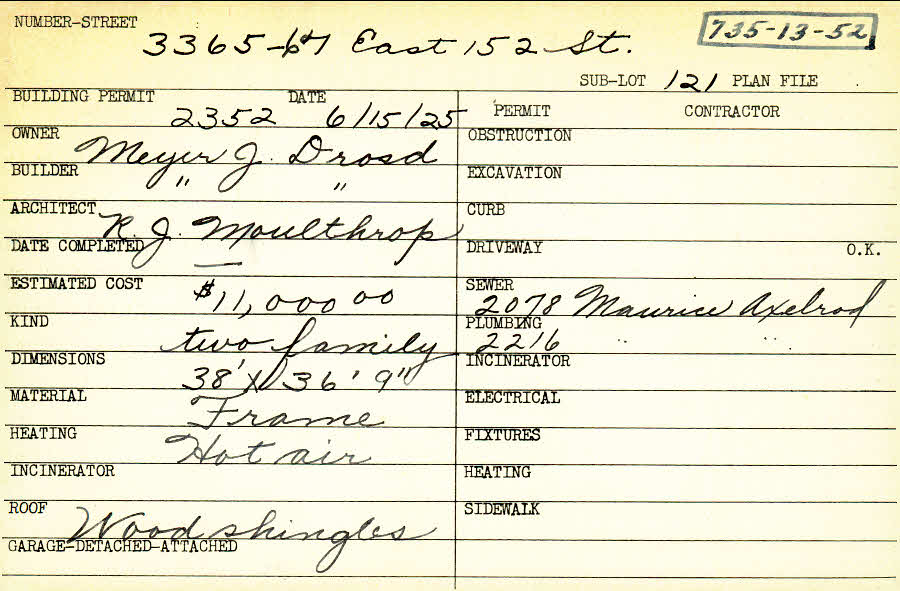 NUMBER-STREET
3365-67 East 152 St.
735-13-52
SUB-LOT 121 PLAN FILE
BUILDING PERMIT 2352 DATE 6/15/25
OWNER Meyer J. Drosd
BUILDER " "
ARCHITECT R. J. Moulthrop
DATE COMPLETED —
ESTIMATED COST $11,000 00
KIND two family
DIMENSIONS 38' X 36' 9"
MATERIAL Frame
HEATING Hot air
INCINERATOR
ROOF Wood shingles
GARAGE-DETACHED-ATTACHED
PERMIT CONTRACTOR
OBSTRUCTION
EXCAVATION
CURB
DRIVEWAY O.K.
SEWER 2078 Maurice Axelrod
PLUMBING 2216 " "
INCINERATOR
ELECTRICAL
FIXTURES
HEATING
SIDEWALK